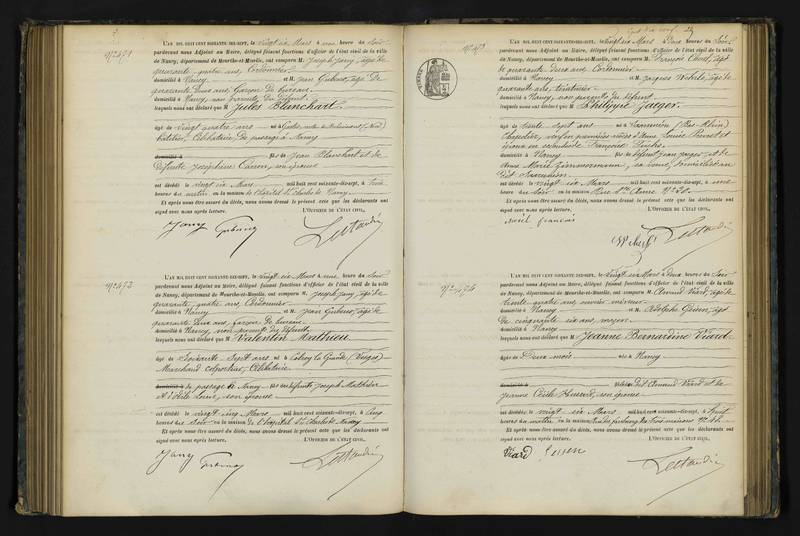 N° 471
L'AN MIL HUIT CENT SOIXANTE-DIX-SEPT, le vingt six Mars à une heure du Soir
pardevant nous Adjoint au Maire, délégué faisant fonctions d'officier de l'état civil de la ville
de Nancy, département de Meurthe-et-Moselle, ont comparu M. Joseph Jany, âgé de
quarante quatre ans, Cordonnier
domicilié à Nancy et M. Jean Gubener, âgé de
quarante deux ans, Garçon de bureau
domicilié à Nancy, non parents du défunt
lesquels nous ont déclaré que M Jules Blanchart
âgé de vingt quatre ans né à
Célibataire, de passage à Nancy
domicilié à fils de Jean Blanchart et de
défunte Joséphine Caron, son épouse
est décédé le vingt six Mars mil huit cent soixante-dix-sept, à trois
heures du matin en la maison de l'hôpital St Charles de Nancy
Et après nous être assuré du décès, nous avons dressé le présent acte que les déclarants ont
signé avec nous après lecture. L'OFFICIER DE L'ÉTAT CIVIL,
Jany
N° 472
L'AN MIL HUIT CENT SOIXANTE-DIX-SEPT, le vingt six Mars à une heure du Soir
pardevant nous Adjoint au Maire, délégué faisant fonctions d'officier de l'état civil de la ville
de Nancy, département de Meurthe-et-Moselle, ont comparu M. Joseph Jany, âgé de
quarante quatre ans, Cordonnier
domicilié à Nancy et M. Jean Gubener, âgé de
quarante deux ans, garçon de bureau
domicilié à Nancy, non parents du défunt
lesquels nous ont déclaré que M Valentin Mathieu
âgé de Soixante Sept ans né à Celroy la Grande (Vosges)
Marchand colporteur, Célibataire
domicilié à de passage à Nancy fils des défunts Joseph Mathieu
et Odile Louis, son épouse
est décédé le vingt cinq Mars mil huit cent soixante-dix-sept, à Cinq
heures du soir en la maison de l'hôpital St Charles de Nancy
Et après nous être assuré du décès, nous avons dressé le présent acte que les déclarants ont
signé avec nous après lecture. L'OFFICIER DE L'ÉTAT CIVIL,
Jany
N° 473
L'AN MIL HUIT CENT SOIXANTE-DIX-SEPT, le vingt six Mars à Deux heures du Soir
pardevant nous Adjoint au Maire, délégué faisant fonctions d'officier de l'état civil de la ville
de Nancy, département de Meurthe-et-Moselle, ont comparu M. François âgé
de quarante deux ans Cordonnier
domicilié à Nancy et M. Jacques Wehrlé, âgé de
quarante ans, teinturier
domicilié à Nancy, non parents du défunt
lesquels nous ont déclaré que M Philippe Jaeger
âgé de trente sept ans né à (Bas-Rhin)
Chapelier, veuf en premières noces d'Anne Louise et
époux en secondes de Françoise
domicilié à Nancy fils de défunt Jean Jaeger et de
Anne Marie Zimmermann, sa veuve, domiciliée au
dit
est décédé le vingt six Mars mil huit cent soixante-dix-sept, à une
heure du Soir en la maison Rue Ste Anne
Et après nous être assuré du décès, nous avons dressé le présent acte que les déclarants ont
signé avec nous après lecture. L'OFFICIER DE L'ÉTAT CIVIL,
françois
N° 474
L'AN MIL HUIT CENT SOIXANTE-DIX-SEPT, le vingt six Mars à Deux heures du Soir
pardevant nous Adjoint au Maire, délégué faisant fonctions d'officier de l'état civil de la ville
de Nancy, département de Meurthe-et-Moselle, ont comparu M. Armand Viard, âgé de
trente quatre ans, ouvrier mineur
domicilié à Nancy et M. Adolphe âgé
de cinquante six ans, maçon
domicilié à Nancy
lesquels nous ont déclaré que M Jeanne Bernardine Viard
âgée de Deux mois née à Nancy
domicilié à fille dudit Armand Viard et de
Jeanne Cécile son épouse
est décédée le vingt six Mars mil huit cent soixante-dix-sept, à Sept
heures du matin en la maison Rue du faubourg des Trois maisons
Et après nous être assuré du décès, nous avons dressé le présent acte que les déclarants ont
signé avec nous après lecture. L'OFFICIER DE L'ÉTAT CIVIL,
Viard